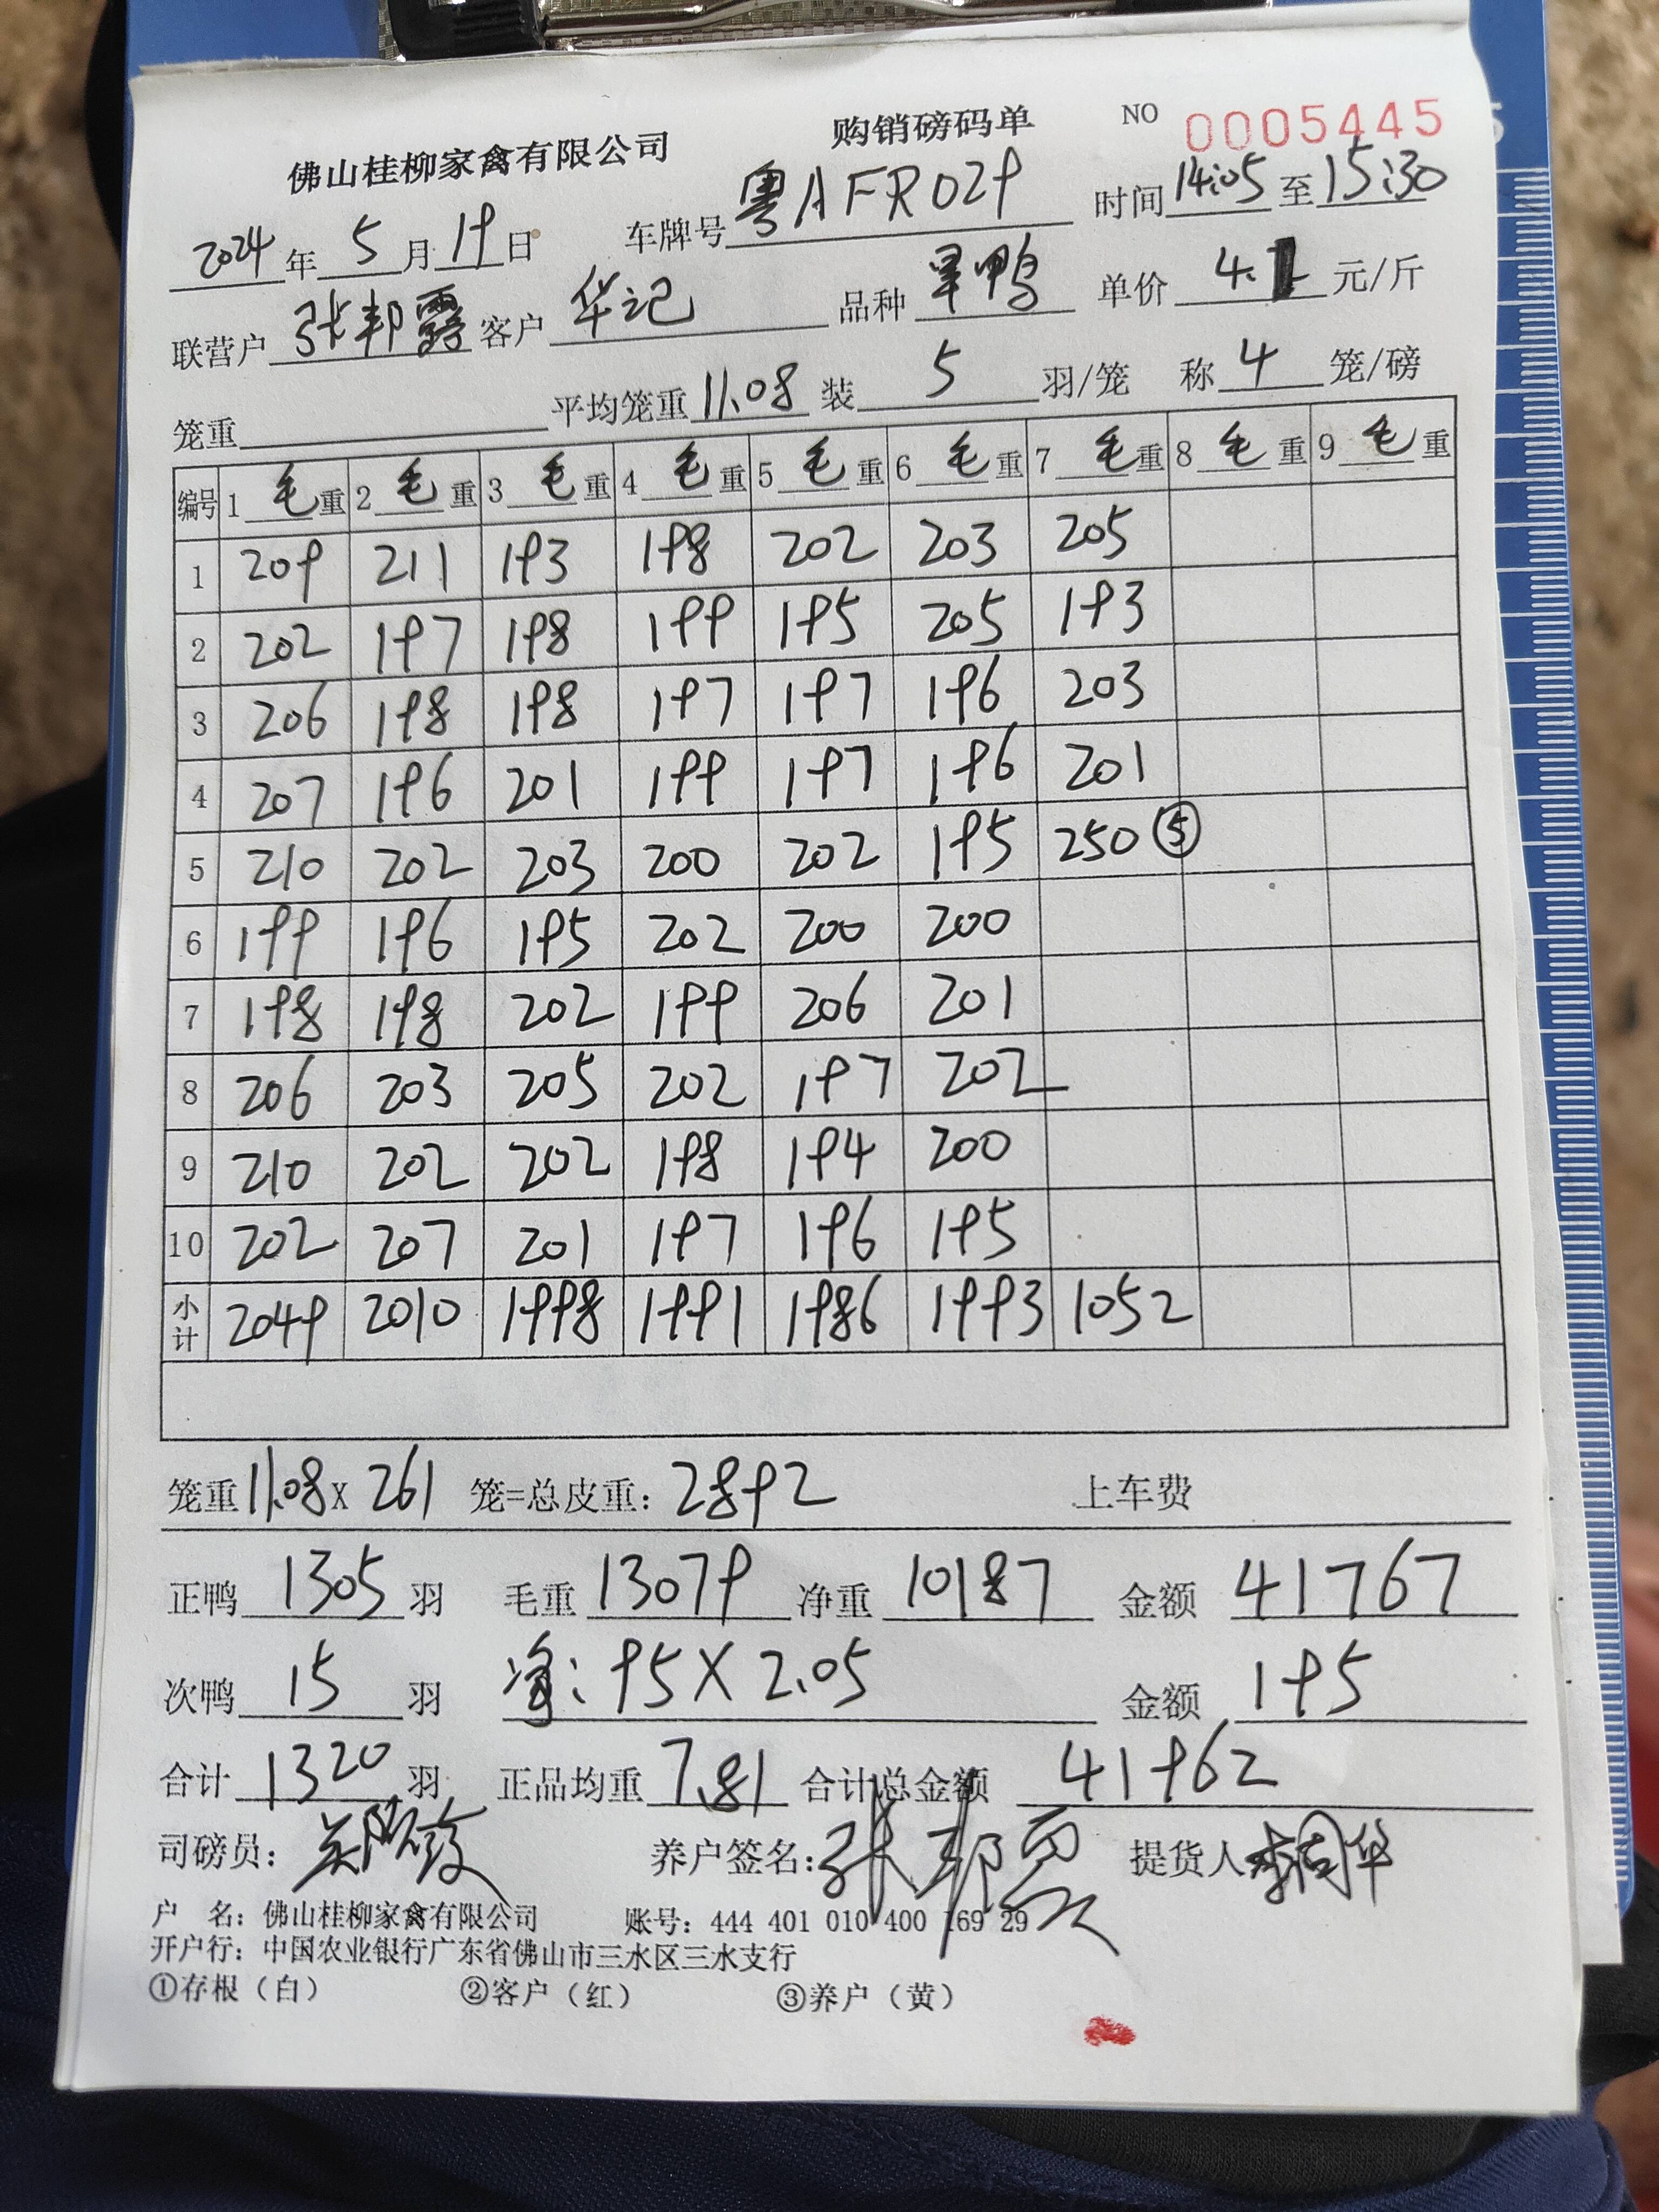 佛山桂柳家禽有限公司 购销磅码单 NO 0005445
2024年5月19日 车牌号 粤AFR029 时间 14:05 至 15:30
联营户 张邦 客户 华记 品种 鸭 单价 4.1 元/斤
笼重 平均笼重 11.08 装 5 羽/笼 称 4 笼/磅
编号 1 毛重 2 毛重 3 毛重 4 毛重 5 毛重 6 毛重 7 毛重 8 毛重 9 毛重
1 209 211 193 198 202 203 205
2 202 197 198 199 195 205 193
3 206 198 198 197 197 196 203
4 207 196 201 199 197 196 201
5 210 202 203 200 202 195 250 ⑤
6 199 196 195 202 200 200
7 198 198 202 199 206 201
8 206 203 205 202 197 202
9 210 202 202 198 194 200
10 202 207 201 197 196 195
小计 2049 2010 1998 1991 1986 1993 1052
笼重 11.08 x 261 笼=总皮重: 2892 上车费
正鸭 1305 羽 毛重 13079 净重 10187 金额 41767
次鸭 15 羽 净: 95 X 2.05 金额 195
合计 1320 羽 正品均重 7.81 合计总金额 41962
司磅员: 养户签名: 张邦 提货人 华
户 名: 佛山桂柳家禽有限公司 账号: 444 401 010 400 169 29
开户行: 中国农业银行广东省佛山市三水区三水支行
①存根（白） ②客户（红） ③养户（黄）